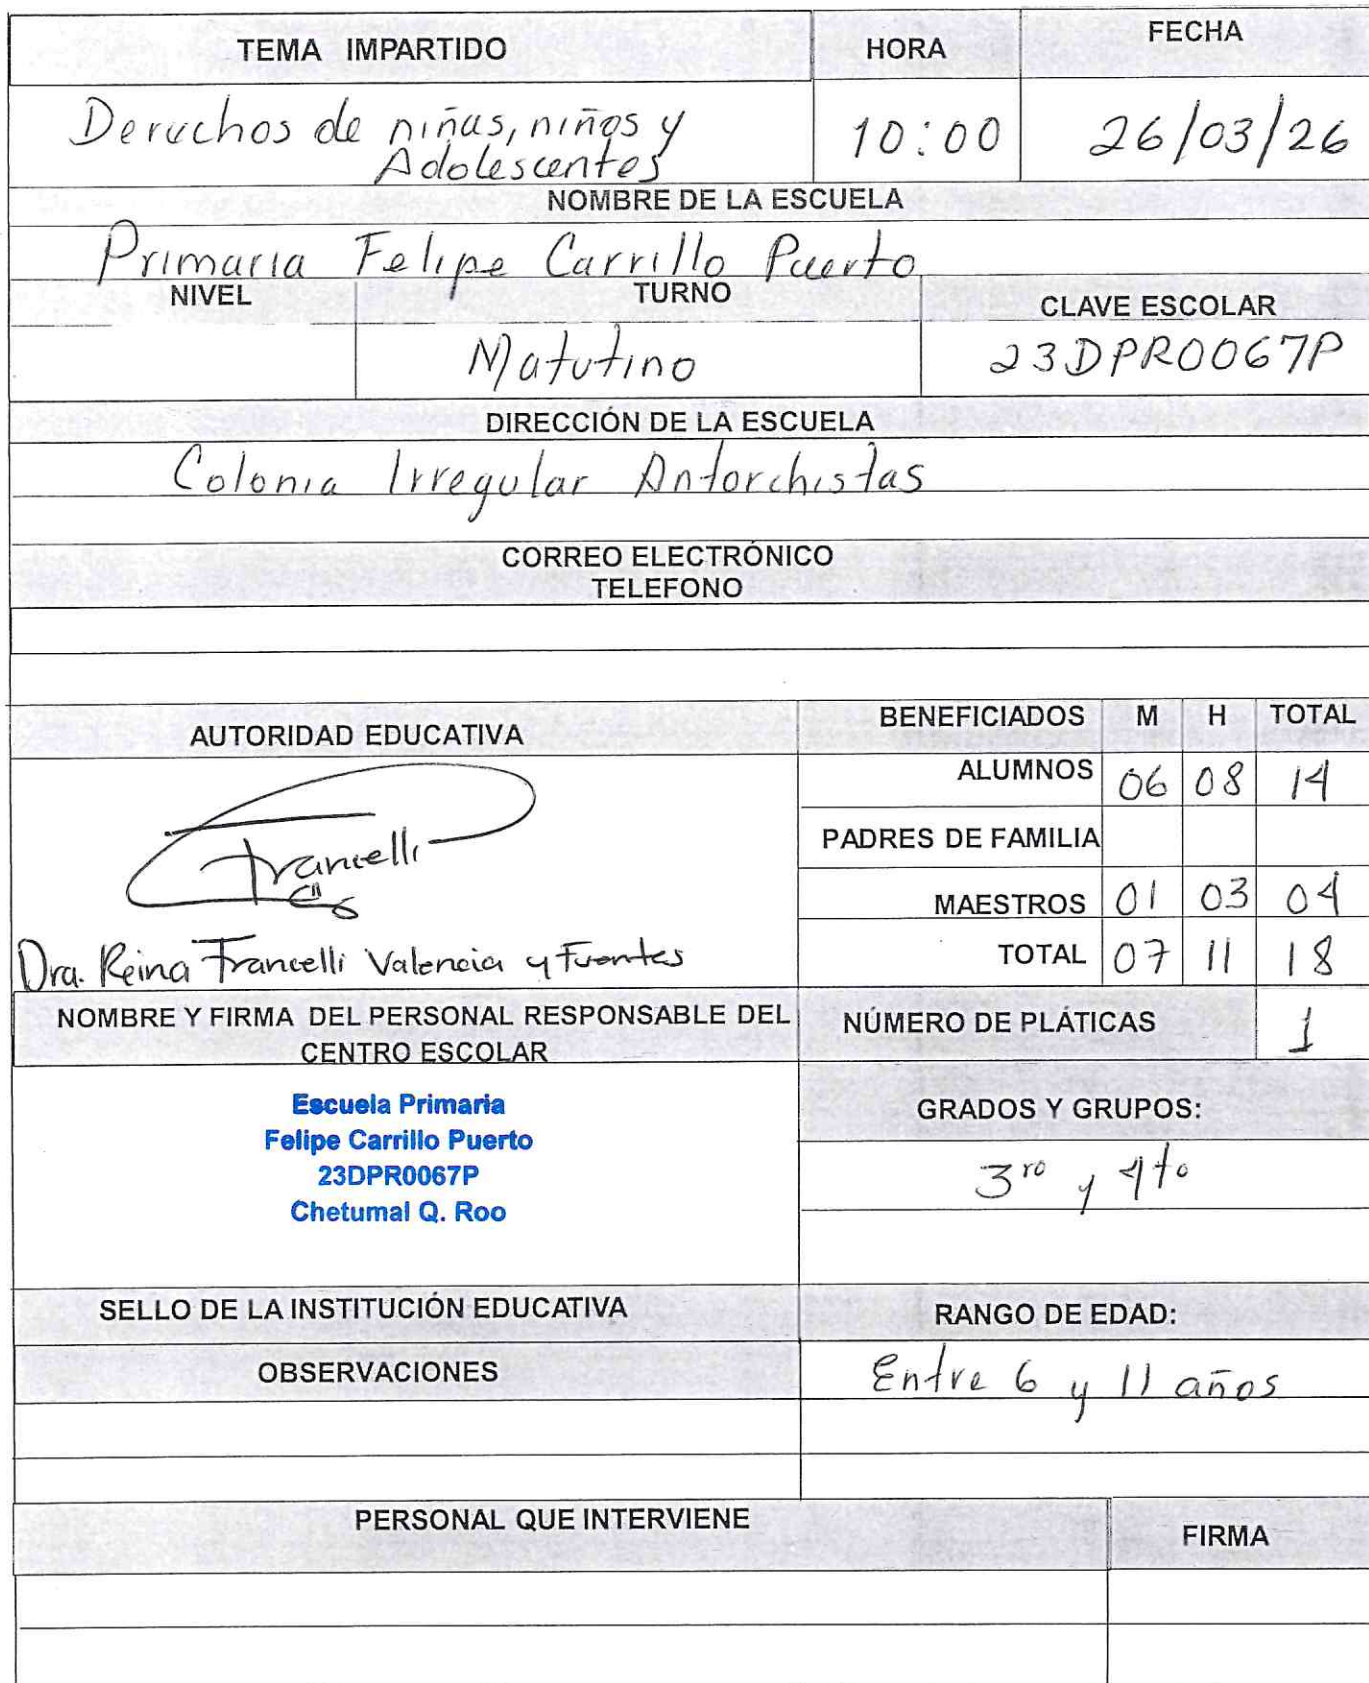 TEMA IMPARTIDO HORA FECHA
Derechos de niñas, niños y
Adolescentes
10:00 26/03/26
NOMBRE DE LA ESCUELA
Primaria Felipe Carrillo Puerto
NIVEL TURNO CLAVE ESCOLAR
Matutino 23DPR0067P
DIRECCIÓN DE LA ESCUELA
Colonia Irregular Antorchistas
CORREO ELECTRÓNICO
TELEFONO
AUTORIDAD EDUCATIVA BENEFICIADOS M H TOTAL
ALUMNOS 06 08 14
PADRES DE FAMILIA
Francelli
MAESTROS 01 03 04
Dra. Reina Francelli Valencia y Fuentes
TOTAL 07 11 18
NOMBRE Y FIRMA DEL PERSONAL RESPONSABLE DEL
CENTRO ESCOLAR
NÚMERO DE PLÁTICAS 1
Escuela Primaria
Felipe Carrillo Puerto
23DPR0067P
Chetumal Q. Roo
GRADOS Y GRUPOS:
3ro y 4to
SELLO DE LA INSTITUCIÓN EDUCATIVA RANGO DE EDAD:
OBSERVACIONES Entre 6 y 11 años
PERSONAL QUE INTERVIENE FIRMA